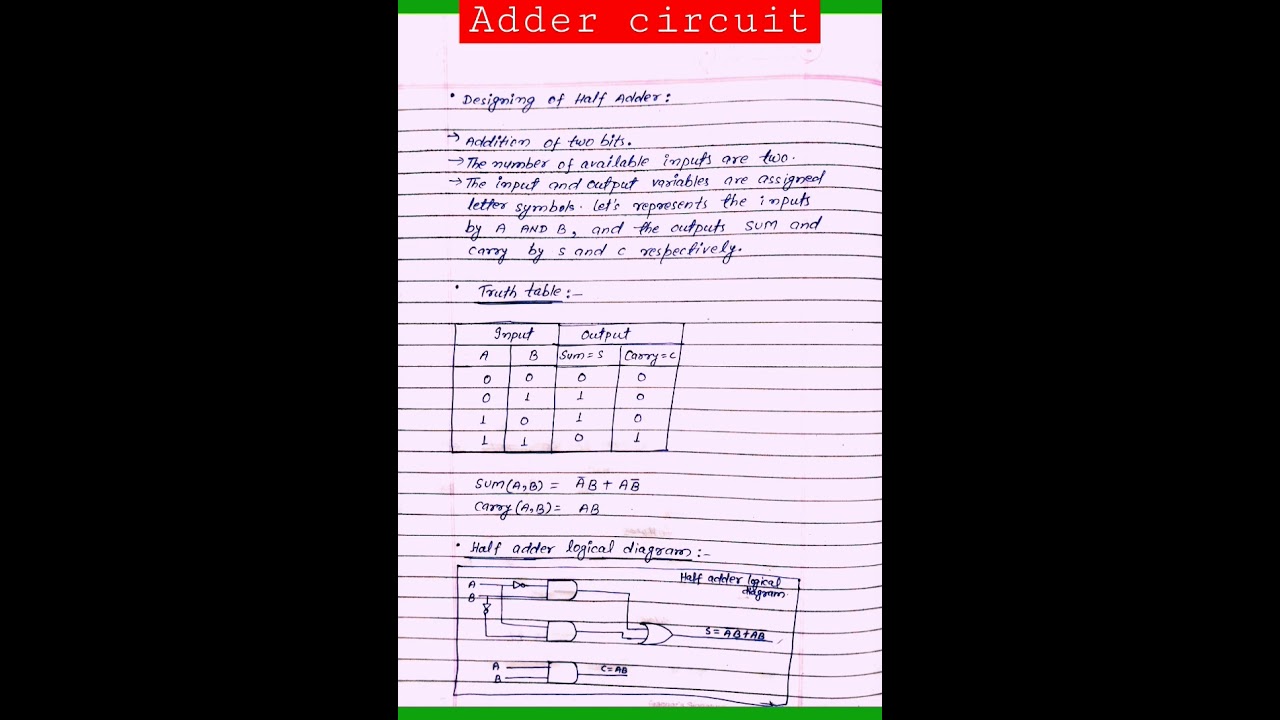 Adder circuit
• Designing of Half Adder:
→ Addition of two bits.
→ The number of available inputs are two.
→ The input and output variables are assigned
letter symbols. Let's represents the inputs
by A AND B, and the outputs SUM and
carry by S and C respectively.
• Truth table:-
Input Output
A B Sum=S Carry=C
0 0 0 0
0 1 1 0
1 0 1 0
1 1 0 1
Sum(A,B) = A̅B + AB̅
Carry(A,B)= AB
• Half adder logical diagram:-
Half adder logical
diagram
A
B
S = A̅B+AB̅
A
B
C=AB